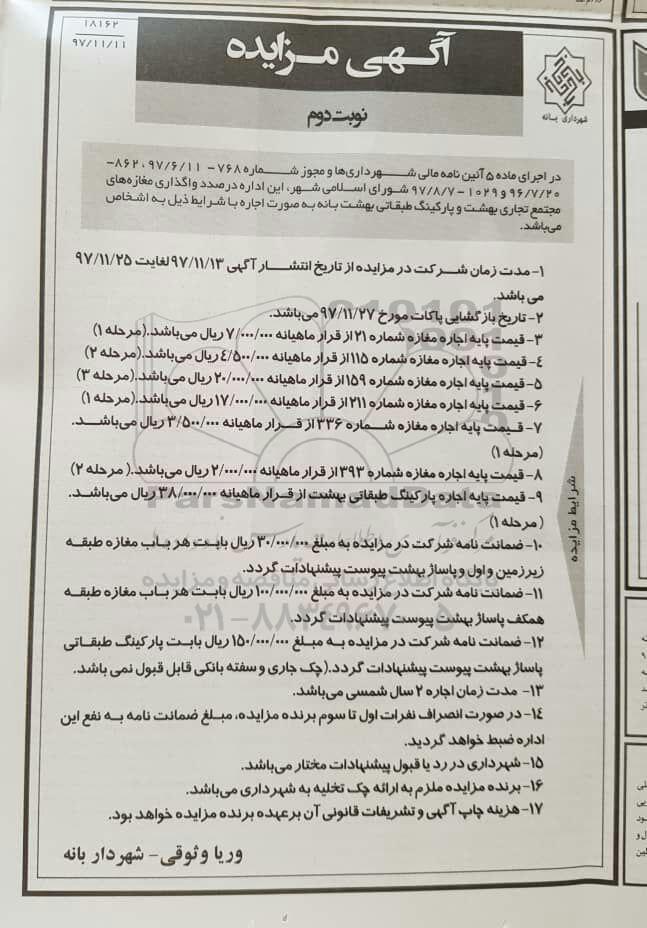 ۱۸۱۶۲
۹۷/۱۱/۱۱
آگهی مزایده
نوبت دوم
شهرداری بانه
در اجرای ماده ۵ آئین نامه مالی شهرداری‌ها و مجوز شماره ۷۶۸- ۹۷/۶/۱۱، ۸۶۲-
۹۶/۷/۲۰ و ۱۰۲۹- ۹۷/۸/۷ شورای اسلامی شهر، این اداره درصدد واگذاری مغازه‌های
مجتمع تجاری بهشت و پارکینگ طبقاتی بهشت بانه به صورت اجاره با شرایط ذیل به اشخاص
می‌باشد.
۱- مدت زمان شرکت در مزایده از تاریخ انتشار آگهی ۹۷/۱۱/۱۳ لغایت ۹۷/۱۱/۲۵
می باشد.
۲- تاریخ بازگشایی پاکات مورخ ۹۷/۱۱/۲۷ می‌باشد.
۳- قیمت پایه اجاره مغازه شماره ۲۱ از قرار ماهیانه ۷/۰۰۰/۰۰۰ ریال می‌باشد.(مرحله ۱)
۴- قیمت پایه اجاره مغازه شماره ۱۱۵ از قرار ماهیانه ۴/۵۰۰/۰۰۰ ریال می‌باشد.(مرحله ۲)
۵- قیمت پایه اجاره مغازه شماره ۱۵۹ از قرار ماهیانه ۲۰/۰۰۰/۰۰۰ ریال می‌باشد.(مرحله ۳)
۶- قیمت پایه اجاره مغازه شماره ۲۱۱ از قرار ماهیانه ۱۷/۰۰۰/۰۰۰ ریال می‌باشد.(مرحله ۱)
۷- قیمت پایه اجاره مغازه شماره ۳۳۶ از قرار ماهیانه ۳/۵۰۰/۰۰۰ ریال می‌باشد.
(مرحله ۱)
۸- قیمت پایه اجاره مغازه شماره ۳۹۳ از قرار ماهیانه ۲/۰۰۰/۰۰۰ ریال می‌باشد.( مرحله ۲)
۹- قیمت پایه اجاره پارکینگ طبقاتی بهشت از قرار ماهیانه ۳۸/۰۰۰/۰۰۰ ریال می‌باشد.
( مرحله ۱)
۱۰- ضمانت نامه شرکت در مزایده به مبلغ ۳۰/۰۰۰/۰۰۰ ریال بابت هر باب مغازه طبقه
زیرزمین و اول و پاساژ بهشت پیوست پیشنهادات گردد.
۱۱- ضمانت نامه شرکت در مزایده به مبلغ ۱۰۰/۰۰۰/۰۰۰ ریال بابت هر باب مغازه طبقه
همکف پاساژ بهشت پیوست پیشنهادات گردد.
۱۲- ضمانت نامه شرکت در مزایده به مبلغ ۱۵۰/۰۰۰/۰۰۰ ریال بابت پارکینگ طبقاتی
پاساژ بهشت پیوست پیشنهادات گردد.(چک جاری و سفته بانکی قابل قبول نمی باشد.
۱۳- مدت زمان اجاره ۲ سال شمسی می‌باشد.
۱۴- در صورت انصراف نفرات اول تا سوم برنده مزایده، مبلغ ضمانت نامه به نفع این
اداره ضبط خواهد گردید.
۱۵- شهرداری در رد یا قبول پیشنهادات مختار می‌باشد.
۱۶- برنده مزایده ملزم به ارائه چک تخلیه به شهرداری می‌باشد.
۱۷- هزینه چاپ آگهی و تشریفات قانونی آن برعهده برنده مزایده خواهد بود.
شرایط مزایده
وریا وثوقی- شهردار بانه
ParsNamadData
پایگاه اطلاع رسانی مناقصه و مزایده
۰۲۱-۸۸۳۴۹۶۷۰-۵